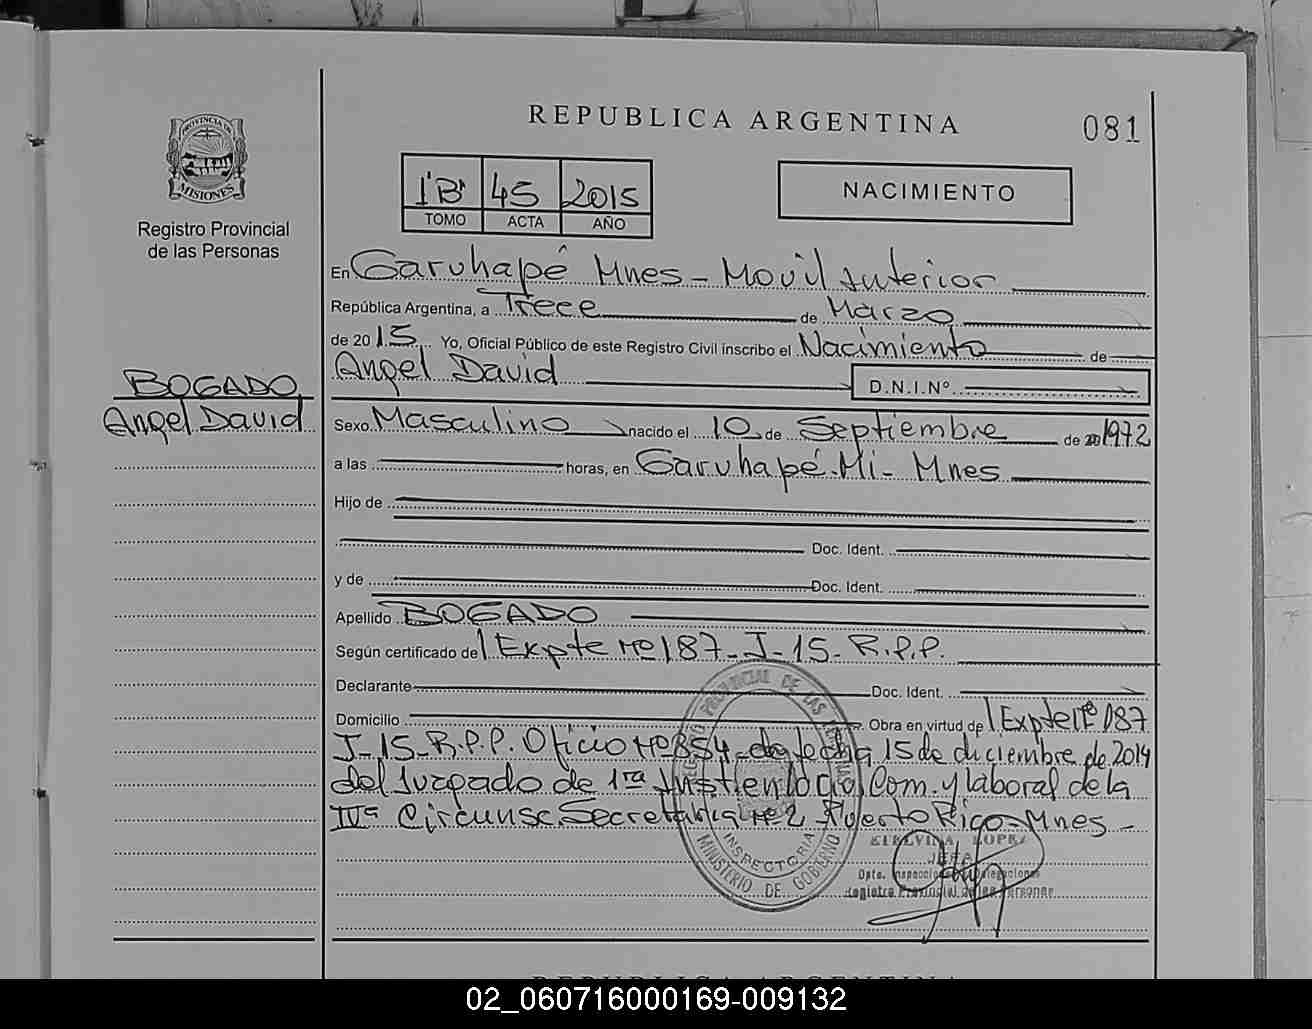 REPUBLICA ARGENTINA
081
PROVINCIA DE
MISIONES
Registro Provincial
de las Personas
1"B" 45 2015
TOMO ACTA AÑO
NACIMIENTO
En Garuhapé Mnes - Movil Interior
República Argentina, a Trece de Marzo
de 2015 Yo, Oficial Público de este Registro Civil inscribo el Nacimiento de
Angel David D.N.I.Nº
BOGADO
Angel David
Sexo Masculino nacido el 10 de Septiembre de 1972
a las horas, en Garuhapé-Mi- Mnes
Hijo de
Doc. Ident.
y de Doc. Ident.
Apellido BOGADO
Según certificado de Expte Nº 187-J-15-R.P.P.
Declarante Doc. Ident.
Domicilio Obra en virtud de Expte Nº 187
J-15-R.P.P. Oficio Nº 854 de fecha 15 de diciembre de 2014
del Juzgado de 1ra Com. y laboral de la
IVª Circunsc. Secretaria Nº 2 Puerto Rico-Mnes-
REGISTRO PROVINCIAL DE LAS
INSPECTORIA
MINISTERIO DE GOBIERNO
LOPEZ
JEFA
Dpto. Inspecciones Delegaciones
Registro Provincial de las Personas
REPUBLICA ARGENTINA
02_060716000169-009132